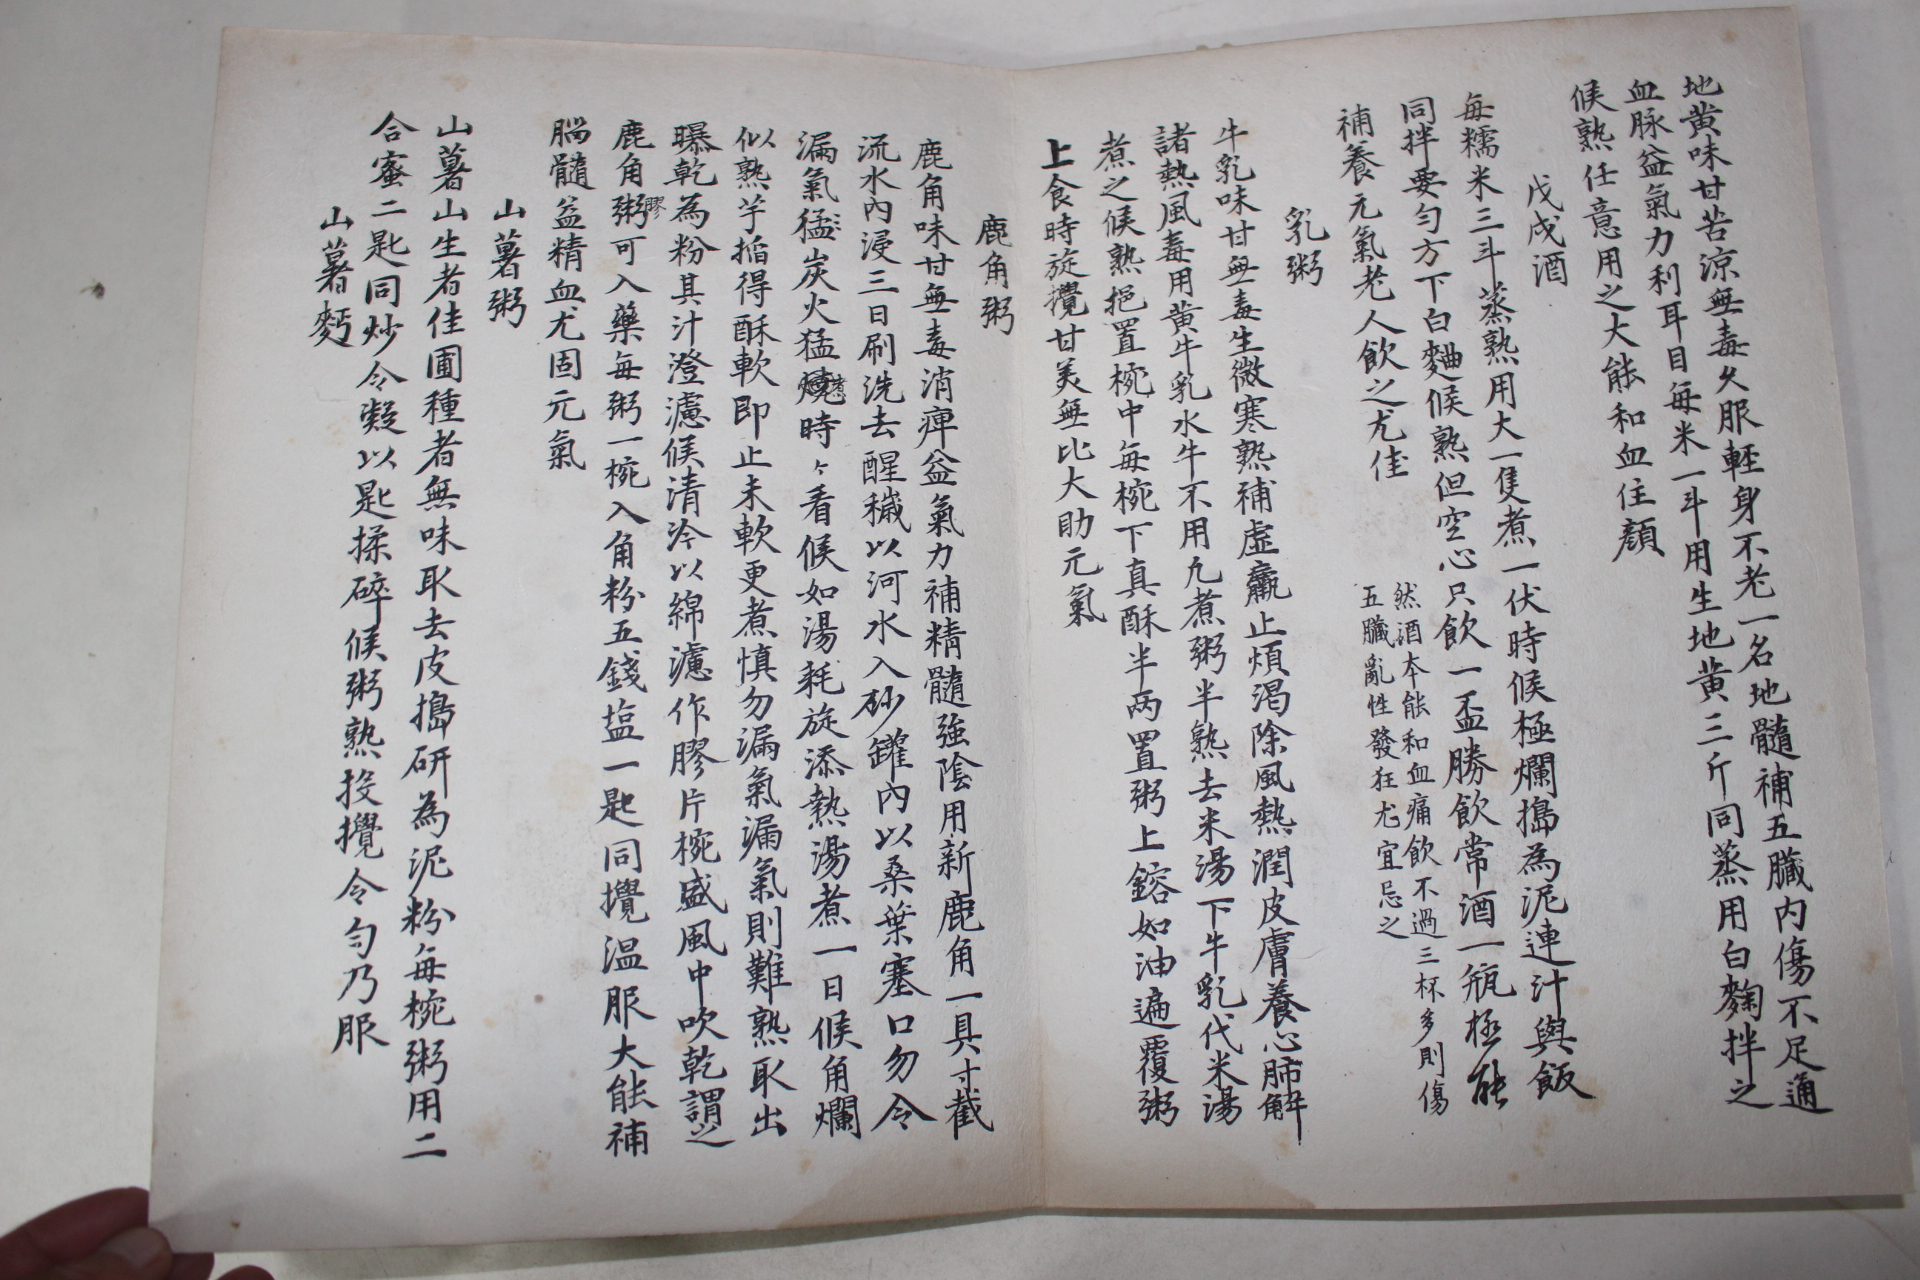 地黄味甘苦涼無毒久服輕身不老一名地髓補五臟内傷不足通
血脉益氣力利耳目每米一斗用生地黄三斤同蒸用白麴拌之
候熟任意用之大能和血住顔
戊戌酒
每糯米三斗蒸熟用大一隻煮一伏時候極爛搗為泥連汁與飯
同拌要勻方下白麯候熟但空心只飲一盃勝飲常酒一瓶極能
補養元氣老人飲之尤佳
然酒本能和血痛飲不過三杯多則傷
五臟亂性發狂尤宜忌之
乳粥
牛乳味甘無毒生微寒熟補虛羸止煩渴除風熱潤皮膚養心肺解
諸熱風毒用黄牛乳水牛不用凡煮粥半熟去米湯下牛乳代米湯
煮之候熟挹置椀中每椀下真酥半两置粥上鎔如油遍覆粥
上食時旋攪甘美無比大助元氣
鹿角粥
鹿角味甘無毒消痺益氣力補精髓強陰用新鹿角一具寸截
流水內浸三日刷洗去腥穢以河水入砂罐內以桑葉塞口勿令
漏氣猛炭火猛燒煮時々看候如湯耗旋添熱湯煮一日候角爛
似熟芋搯得酥軟即止未軟更煮慎勿漏氣漏氣則難熟取出
曝乾為粉其汁澄濾候清冷以綿濾作膠片椀盛風中吹乾謂之
鹿角粥膠可入藥每粥一椀入角粉五錢塩一匙同攪温服大能補
腦髓益精血尤固元氣
山薯粥
山薯山生者佳圃種者無味取去皮搗研為泥粉每椀粥用二
合蜜二匙同炒令凝以匙揉碎候粥熟投攪令勻乃服
山薯麪